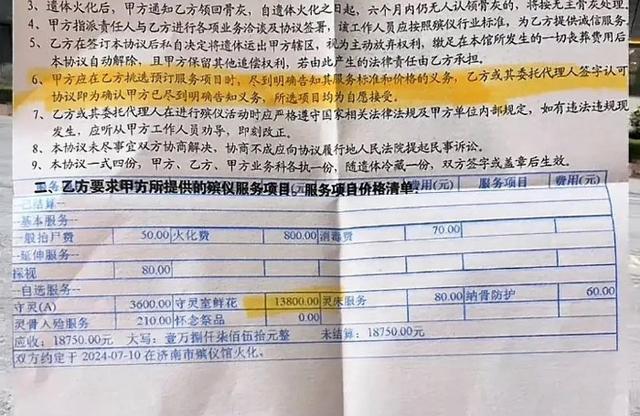 3、遗体火化后，甲方通知乙方领回骨灰，自遗体火化之日起，六个月内仍无人认领骨灰的，将按无主骨灰处理。
4、甲方指派责任人与乙方进行各项业务洽谈及协议签署，该工作人员应按照殡仪行业标准，为乙方提供诚信服务。
5、乙方在签订本协议后私自决定将遗体运出甲方辖区，视为主动放弃权利，缴足在本馆所发生的一切丧葬费用后
本协议自动解除，且甲方保留其他追偿权利，若由此产生的法律责任由乙方承担。
6、甲方应在乙方挑选预订服务项目时，尽到明确告知其服务标准和价格的义务，乙方或其委托代理人签字认可
协议即为确认甲方已尽到明确告知义务，所选项目均为自愿接受。
7、乙方或其委托代理人在进行殡仪活动时应严格遵守国家相关法律法规及甲方单位内部规定，如有违法违规现
发生，应听从甲方工作人员劝导，即刻改正。
8、本协议未尽事宜双方协商解决，协商不成应向协议履行地人民法院提起民事诉讼。
9、本协议一式四份，甲方、乙方、甲方业务科各执一份，随遗体冷藏一份，双方签字或盖章后生效。
二、乙方要求甲方所提供的殡仪服务项目，服务项目价格清单：
费用(元) 服务项目 费用(元)
--已结算--
--基本服务--
一般抬尸费 50.00 火化费 800.00 消毒费 70.00
--延伸服务--
探视 80.00
--自选服务--
守灵(A) 3600.00 守灵室鲜花 13800.00 灵床服务 80.00 纳骨防护 60.00
灵骨入殓服务 210.00 怀念祭品 0.00
应收：18750.00元 大写：壹万捌仟柒佰伍拾元整 未结算：18750.00元
双方约定于 2024-07-10 在济南市殡仪馆火化。